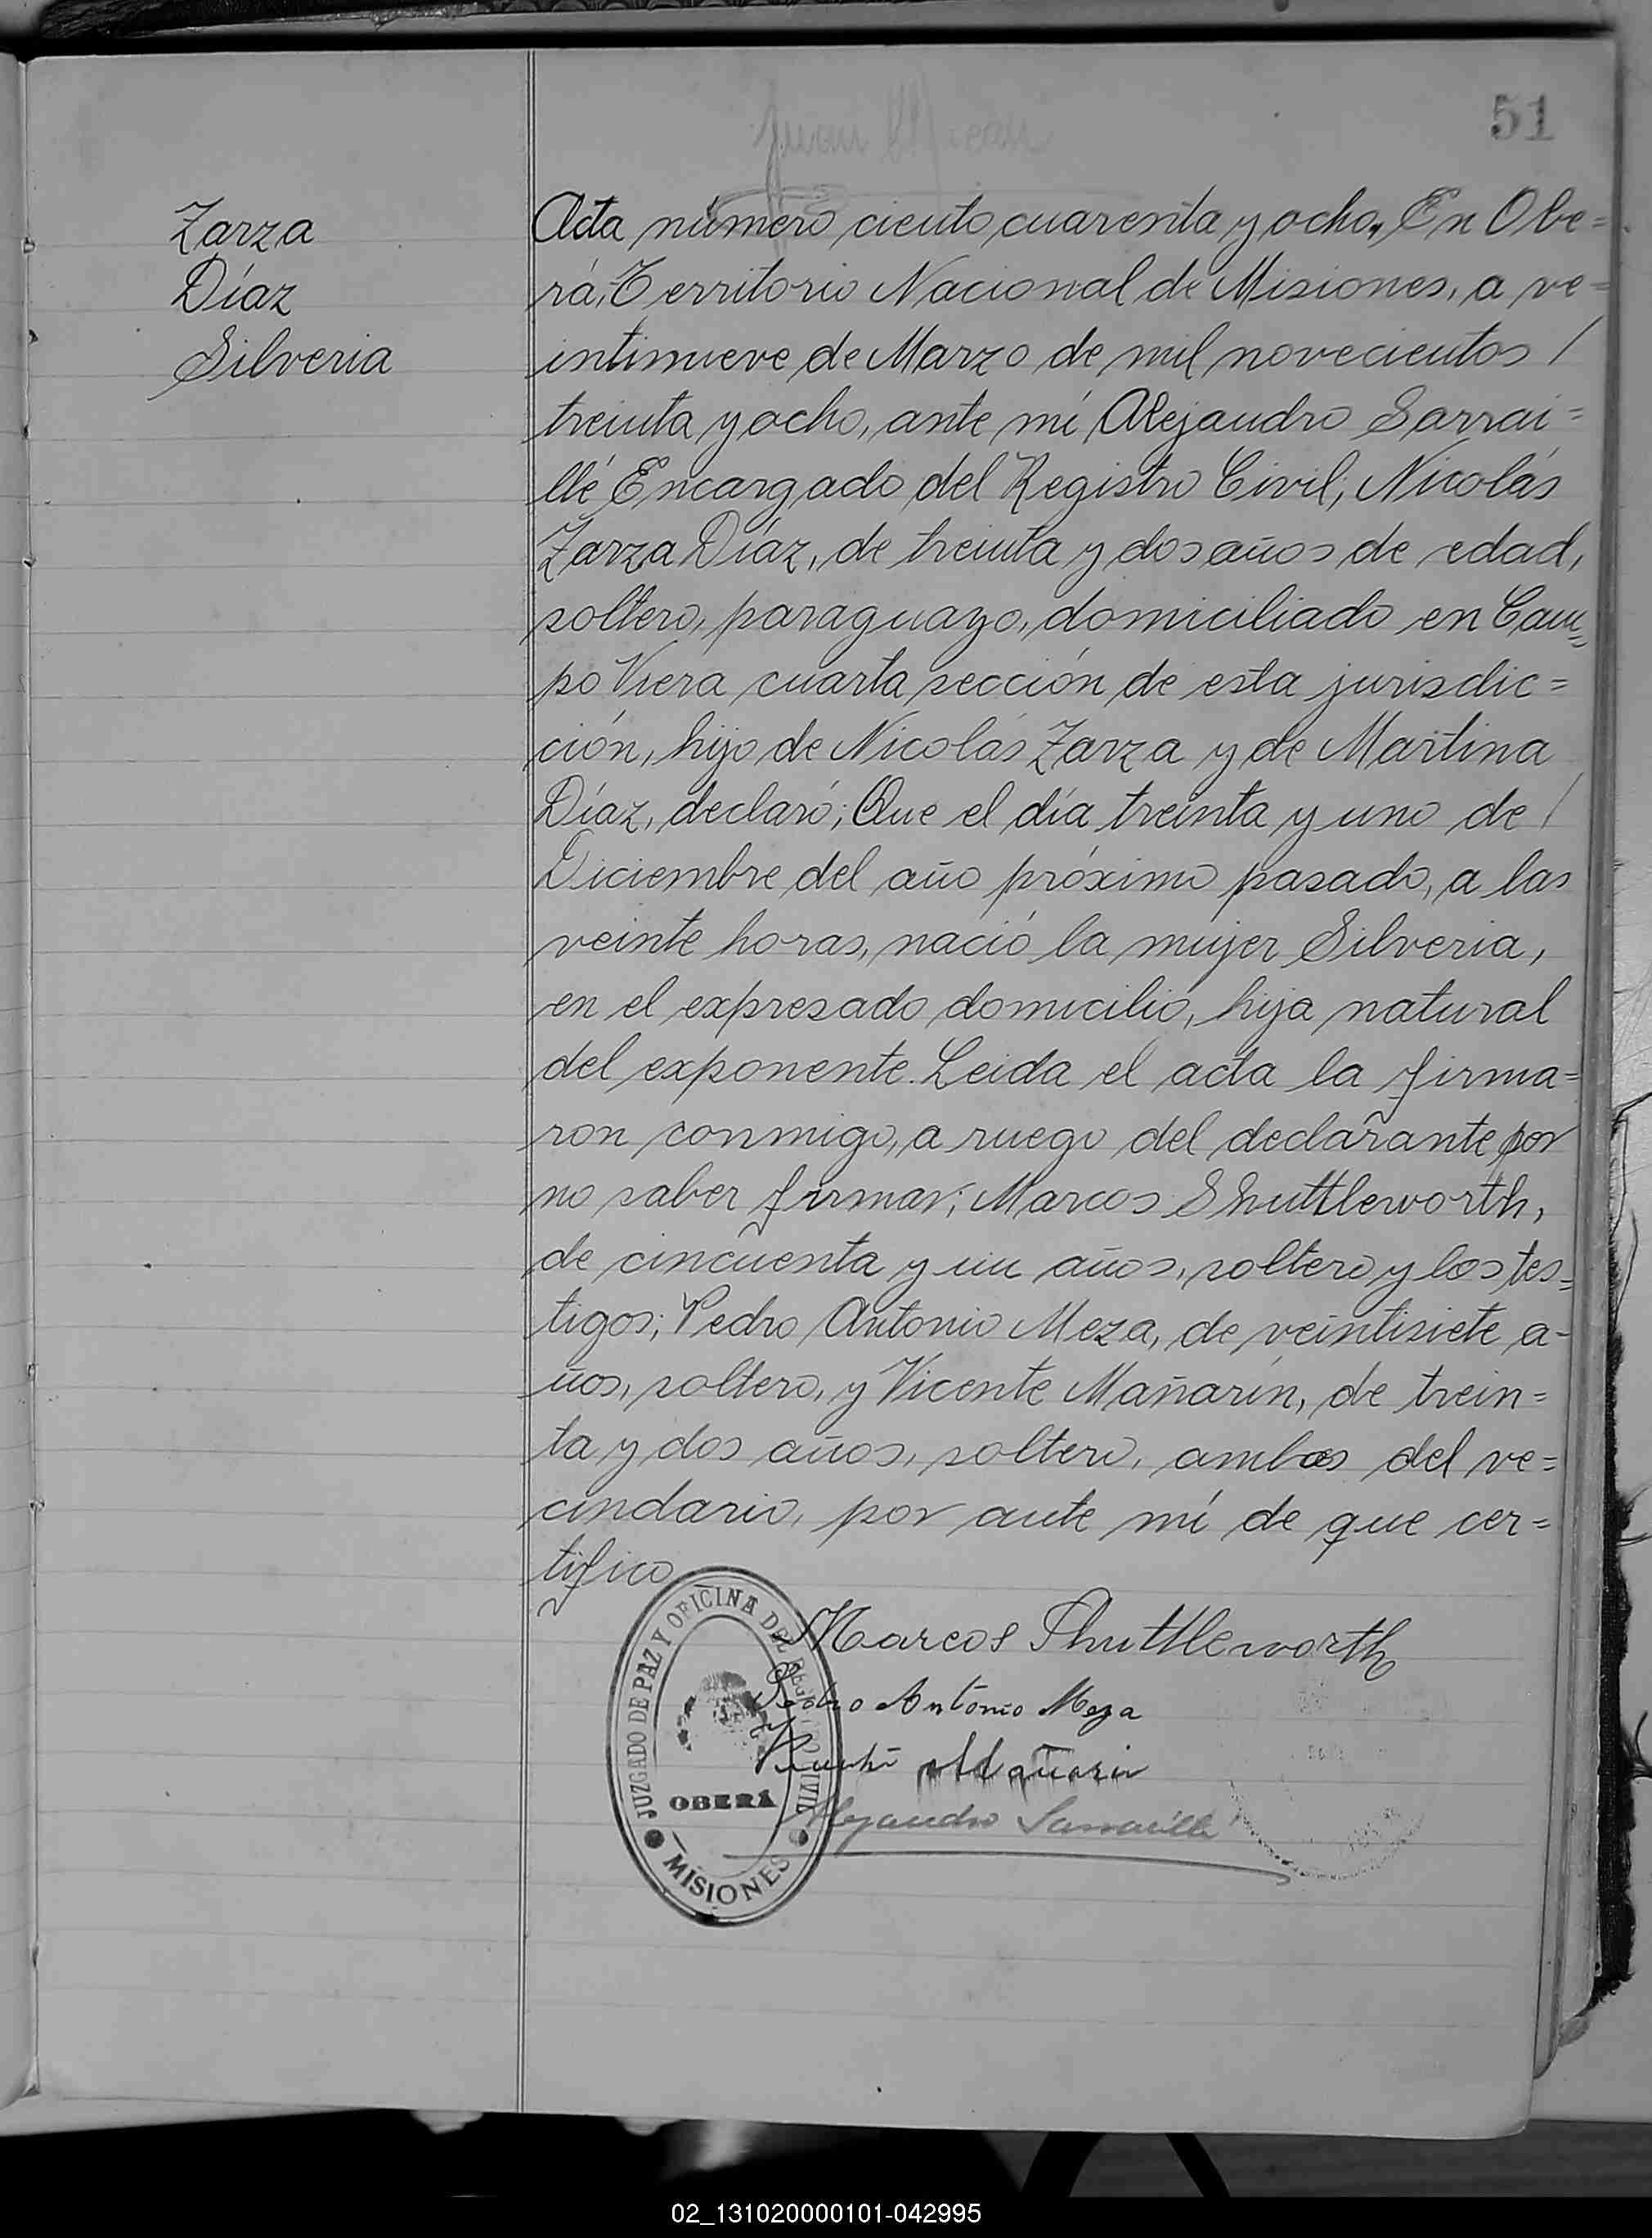 51
Zarza
Díaz
Silveria
Acta número ciento cuarenta y ocho. En Obe=
rá, Territorio Nacional de Misiones, a ve=
intinueve de Marzo de mil novecientos /
treinta y ocho, ante mí Alejandro Sarrai=
llé Encargado del Registro Civil; Nicolás
Zarza Díaz, de treinta y dos años de edad,
soltero, paraguayo, domiciliado en Cam=
po Viera cuarta sección de esta jurisdic=
ción, hijo de Nicolás Zarza y de Martina
Díaz, declaró; Que el día treinta y uno de /
Diciembre del año próximo pasado, a las
veinte horas, nació la mujer Silveria,
en el expresado domicilio, hija natural
del exponente. Leida el acta la firma=
ron conmigo, a ruego del declarante por
no saber firmar; Marcos Shuttleworth,
de cincuenta y un años, soltero y los tes=
tigos; Pedro Antonio Meza, de veintisiete a-
ños, soltero, y Vicente Mañarín, de trein=
ta y dos años, soltero, ambos del ve=
cindario, por ante mí de que cer=
tifico
Marcos Shuttleworth
Pedro Antonio Meza
Vicente Mañarin
Alejandro Sarraillé
JUZGADO DE PAZ Y OFICINA DEL CIVIL
OBERÁ
MISIONES
02_131020000101-042995